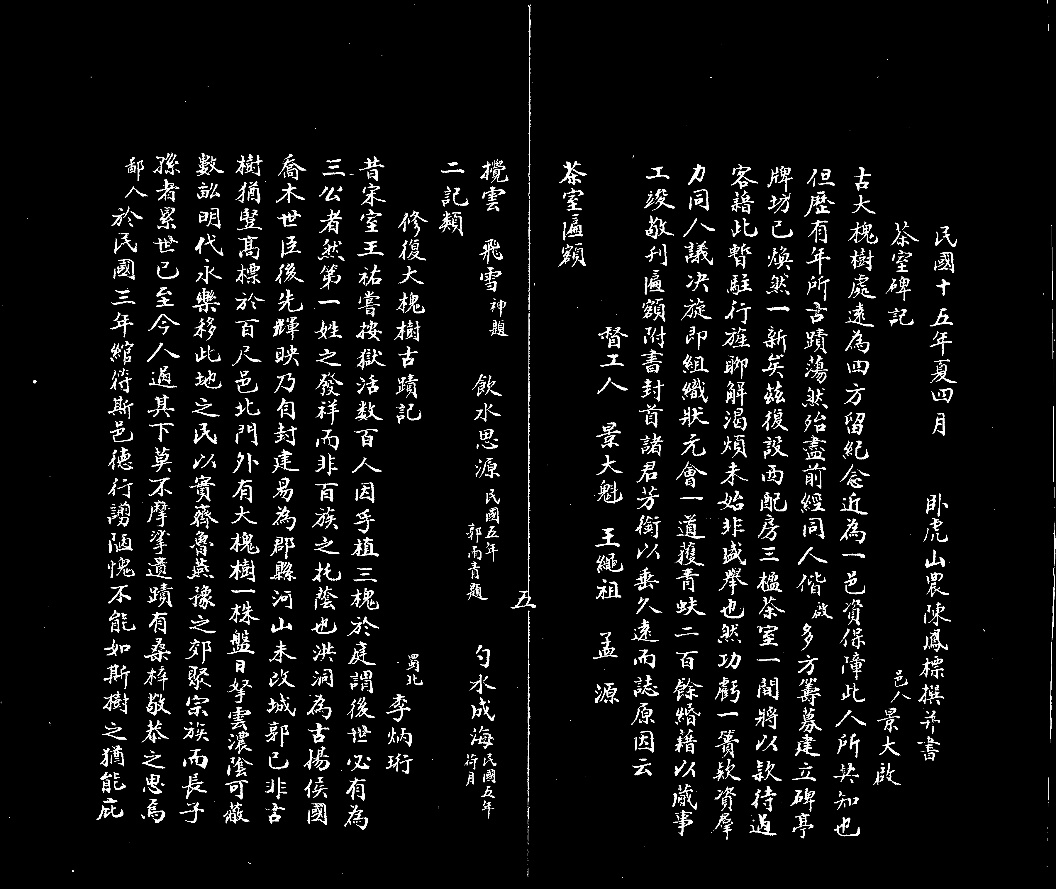 民國十五年夏四月　卧虎山農陳鳳標撰并書
茶室碑記　邑人景大啟
古大槐樹處遠為四方留紀念近為一邑資保障此人所共知也
但歷有年所古蹟蕩然殆盡前經同人偕啟多方籌募建立碑亭
牌坊已煥然一新矣茲復設西配房三楹茶室一間將以欵待過
客藉此暫駐行旌聊解渴煩未始非盛舉也然功虧一簣欵資羣
力同人議决旋即組織狀元會一道獲青蚨二百餘緡藉以蕆事
工竣敬刋匾額附書封首諸君芳銜以垂久遠而誌原因云
督工人　景大魁　王繩祖　孟源
茶室匾額
五
攬雲　飛雪神題　飲水思源民國五年郭雨青題　勺水成海民國五年荷月
二記類
修復大槐樹古蹟記　蜀北李炳珩
昔宋室王祐嘗按獄活数百人因手植三槐於庭謂後世必有為
三公者然第一姓之發祥而非百族之托蔭也洪洞為古楊侯國
喬木世臣後先輝映乃自封建易為郡縣河山未改城郭已非古
樹猶豎高標於百尺邑北門外有大槐樹一株盤日拏雲濃陰可蔽
數畝明代永樂移此地之民以實齊魯燕豫之郊聚宗族而長子
孫者累世已至今人過其下莫不摩挲遺蹟有桑梓敬恭之思焉
鄙人於民國三年綰符斯邑德行謭陋愧不能如斯樹之猶能庇